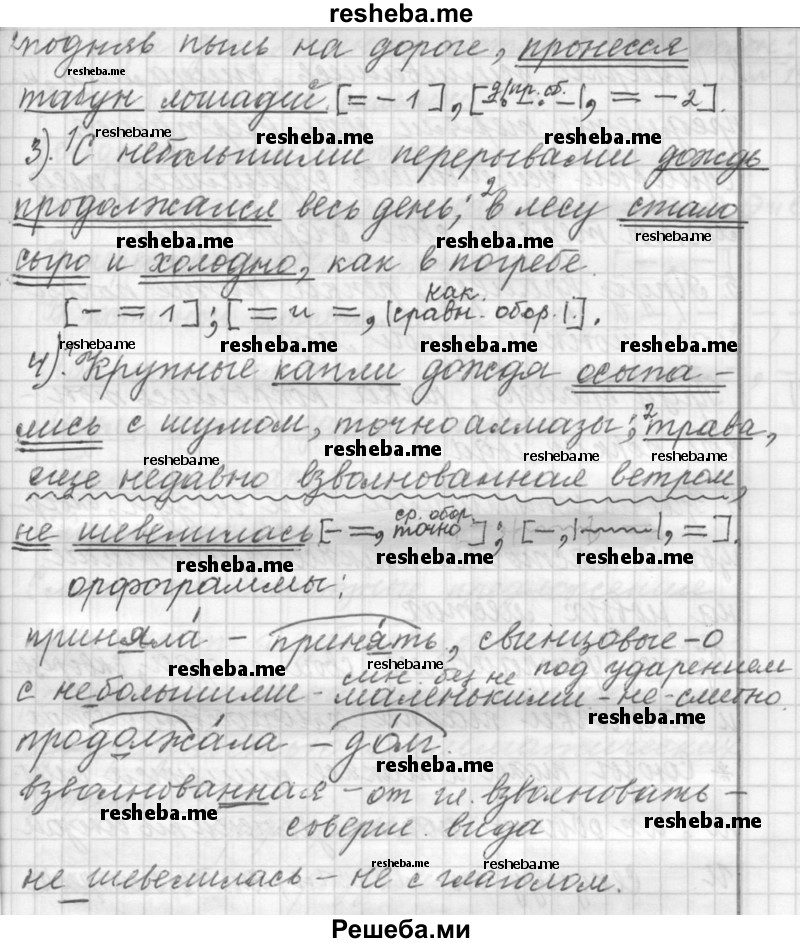 resheba.me
подняв пыль на дороге, пронесся
resheba.me
табун лошадей. [= - 1], [д/пр. об. -|, = - 2].
resheba.me resheba.me resheba.me
3). 1С небольшими перерывами дождь
продолжался весь день; 2в лесу стало
resheba.me resheba.me resheba.me
сыро и холодно, как в погребе.
[- = 1]; [= и =, |как. сравн. обор.|.].
resheba.me resheba.me resheba.me resheba.me
4). Крупные капли дождя осыпа -
лись с шумом, точно алмазы; 2трава,
resheba.me resheba.me resheba.me resheba.me
еще недавно взволнованная ветром,
не шевелилась [- =, ср. обор. точно]; [-, | |, =].
resheba.me resheba.me
орфограммы:
приняла́ - приня́ть, свинцовые - о
под ударением
resheba.me resheba.me
с небольшими - син. без не маленькими - не - слитно.
resheba.me
продолжа́ла - до́лг.
resheba.me
взволнованная - от гл. взволновать -
resheba.me resheba.me
соверш. вида
не шевелилась - не с глаголом.
resheba.me resheba.me
Решеба.ми